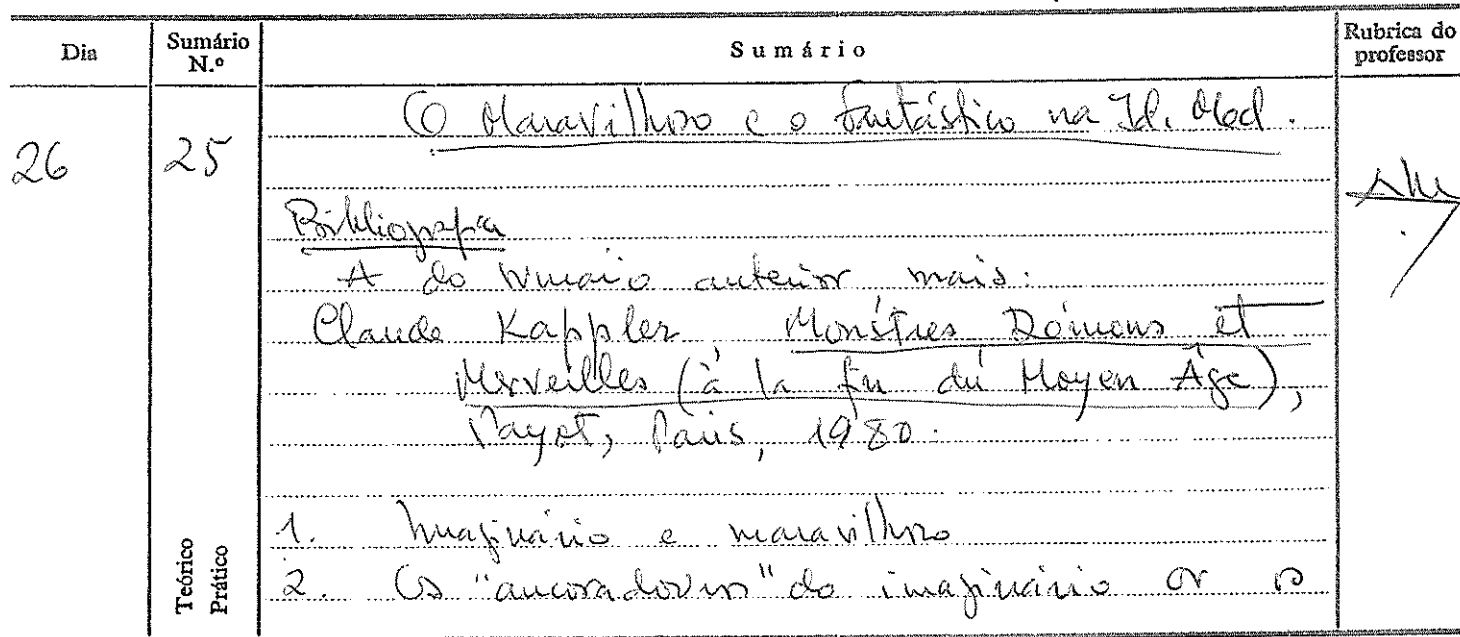 Dia
Sumário N.º
Sumário
Rubrica do professor
26
25
O Maravilhoso e o fantástico na Id. Med.
Bibliografia
A do sumário anterior mais:
Claude Kappler, Monstres Démons et
Merveilles (à la fin du Moyen Âge),
Payot, Paris, 1980.
Teórico
Prático
1. Imaginário e maravilhoso
2. Os "ancoradouros" do imaginário